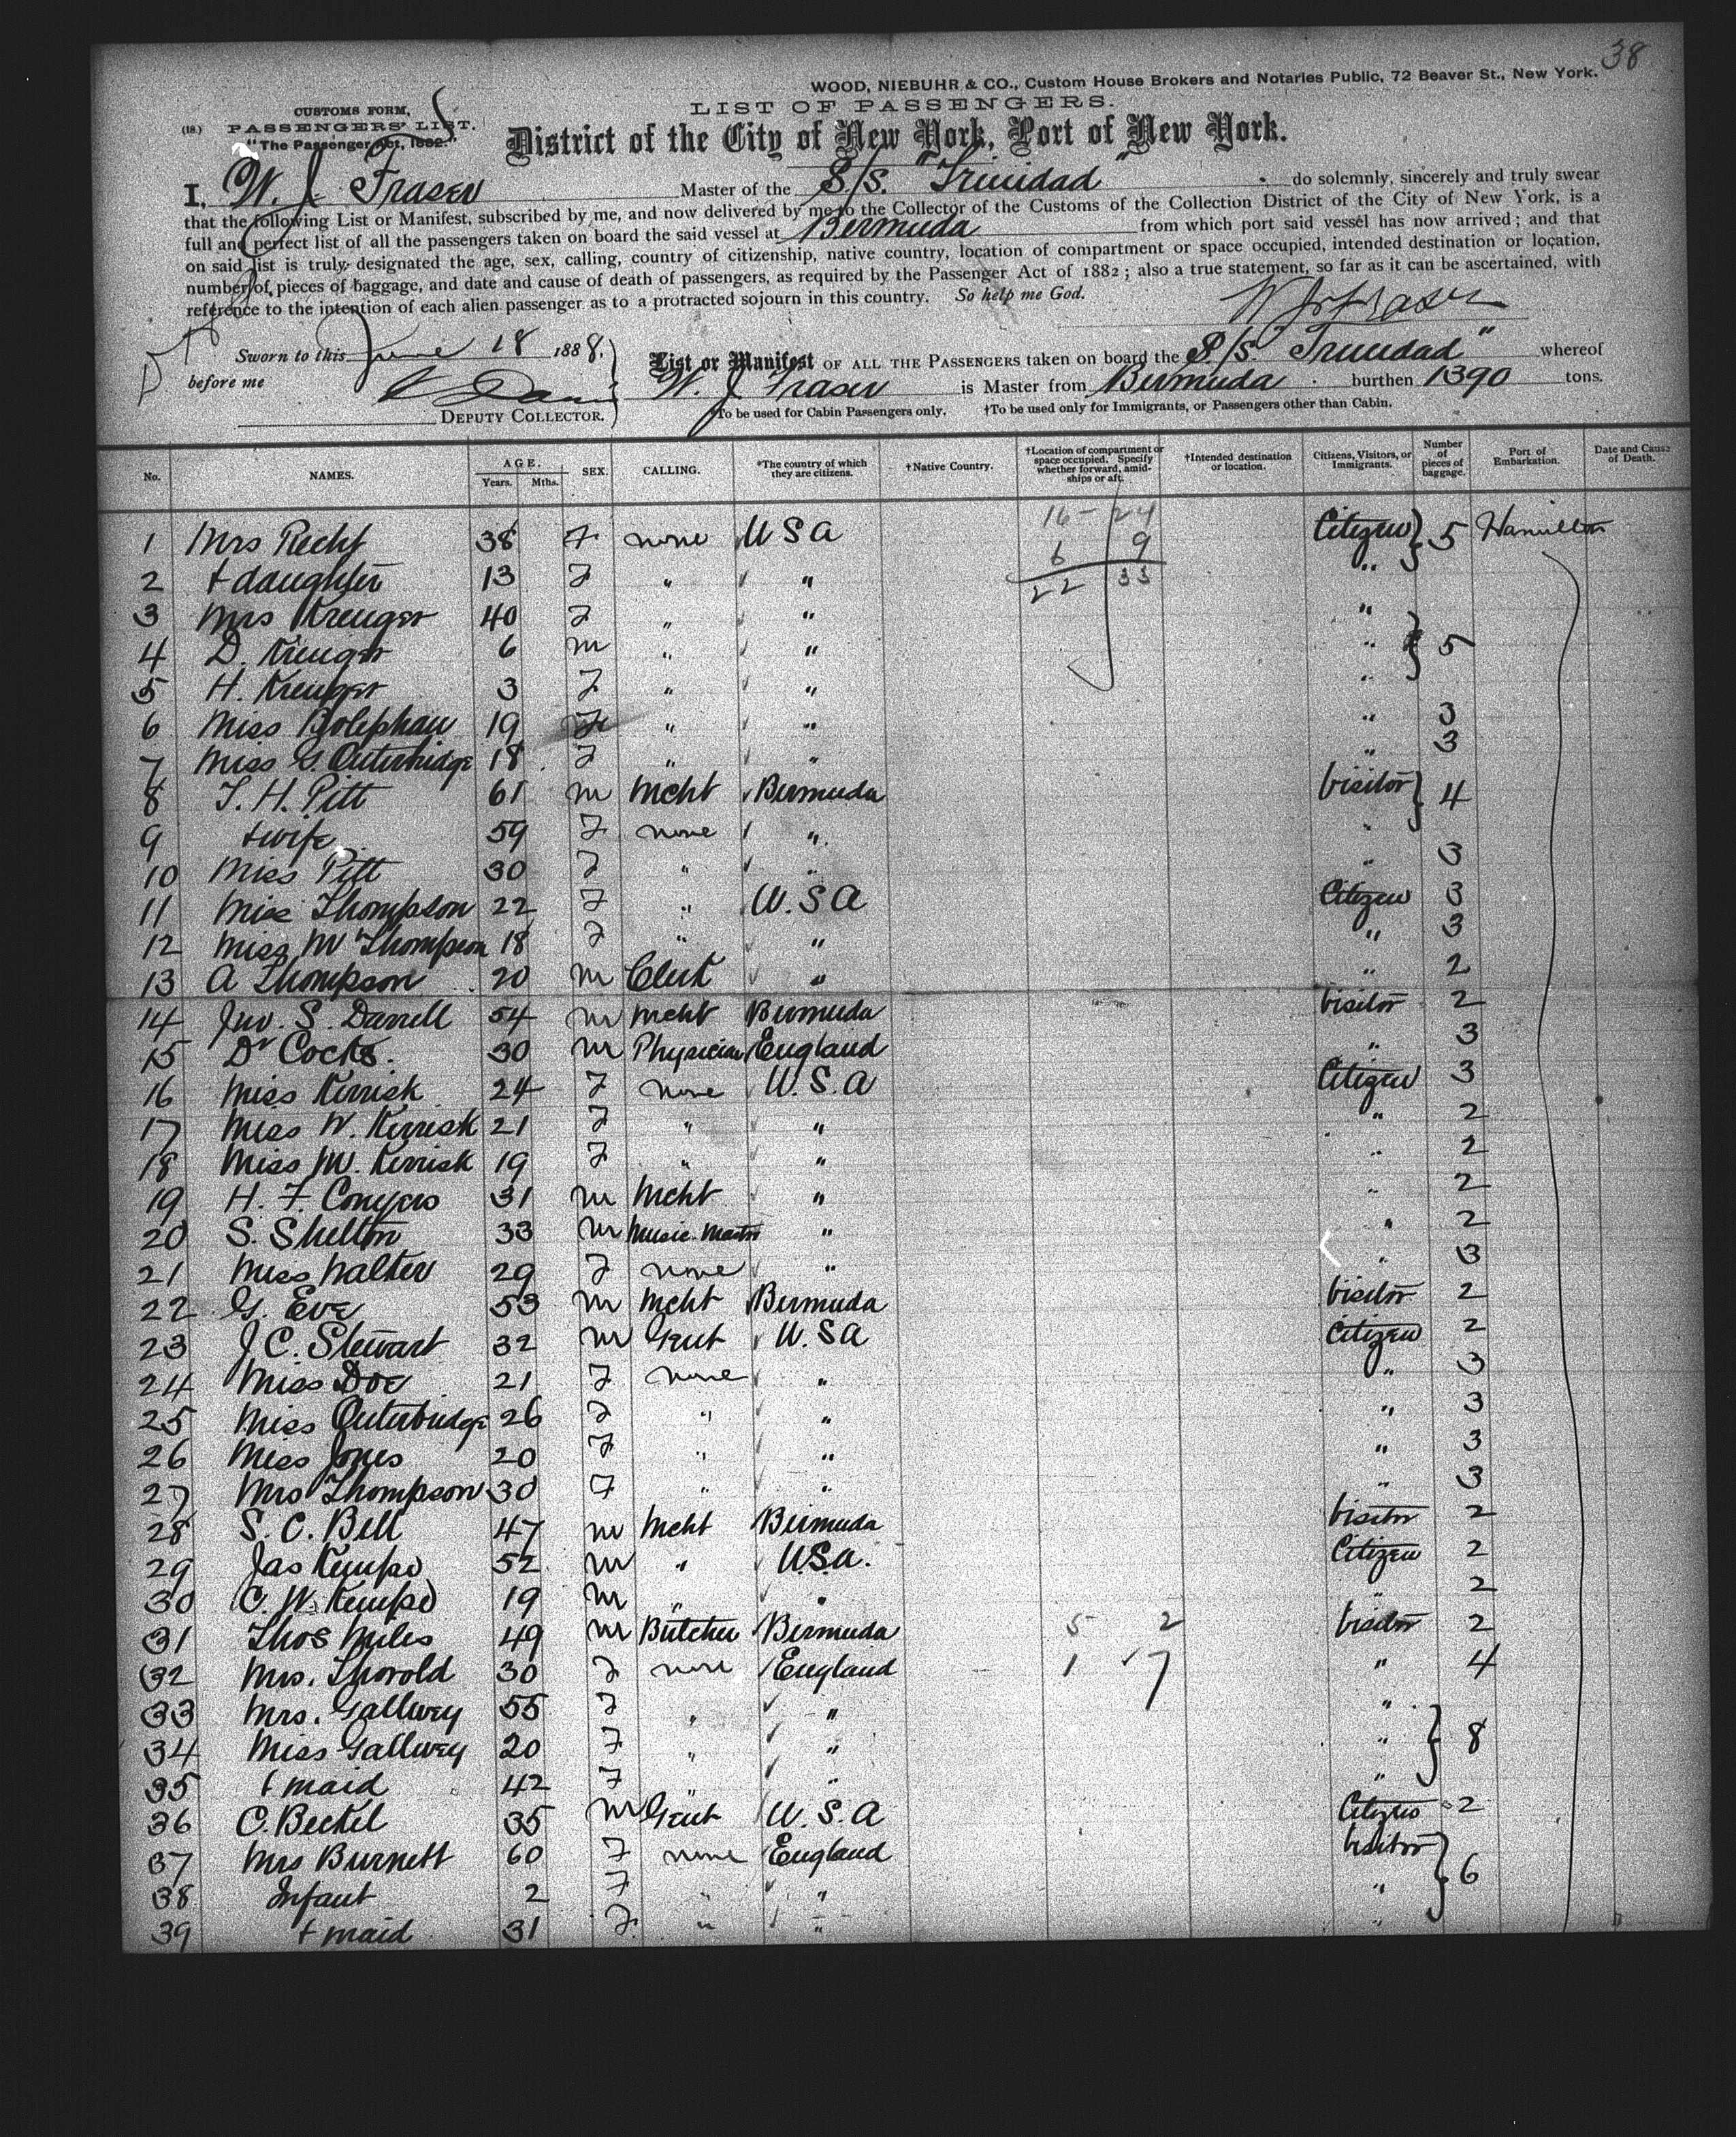 38
WOOD, NIEBUHR & CO., Custom House Brokers and Notaries Public, 72 Beaver St., New York.
LIST OF PASSENGERS.
CUSTOMS FORM,
(18.) PASSENGERS' LIST.
"The Passenger Act, 1882."
District of the City of New York, Port of New York.
I, W. J. Fraser Master of the S/S. "Trinidad" do solemnly, sincerely and truly swear
that the following List or Manifest, subscribed by me, and now delivered by me to the Collector of the Customs of the Collection District of the City of New York, is a
full and perfect list of all the passengers taken on board the said vessel at Bermuda from which port said vessel has now arrived; and that
on said list is truly designated the age, sex, calling, country of citizenship, native country, location of compartment or space occupied, intended destination or location,
number of pieces of baggage, and date and cause of death of passengers, as required by the Passenger Act of 1882; also a true statement, so far as it can be ascertained, with
reference to the intention of each alien passenger as to a protracted sojourn in this country. So help me God.
W J Fraser
Sworn to this June 18 1888,
before me
DEPUTY COLLECTOR.
List or Manifest OF ALL THE PASSENGERS taken on board the S/S. "Trinidad" whereof
W. J. Fraser is Master from Bermuda burthen 1390 tons.
*To be used for Cabin Passengers only. †To be used only for Immigrants, or Passengers other than Cabin.
No. NAMES. AGE. Years. Mths. SEX. CALLING. *The country of which they are citizens. †Native Country. †Location of compartment or space occupied. Specify whether forward, amidships or aft. †Intended destination or location. Citizens, Visitors, or Immigrants. Number of pieces of baggage. Port of Embarkation. Date and Cause of Death.
16 - 24
6 9
22 33
1 Mrs Recht 38 F none U S A Citizen 5 Hamilton
2 + daughter 13 F " " "
3 Mrs Kreuger 40 F " " "
4 D. Kreuger 6 m " " " 5
5 H. Kreuger 3 F " " "
6 Miss 19 F " " " 3
7 Miss G. Outerbridge 18 F " " " 3
8 T. H. Pitt 61 m Mcht Bermuda Visitor 4
9 + wife 59 F none " "
10 Miss Pitt 30 F " " " 3
11 Miss Thompson 22 F " U.S A Citizen 3
12 Miss M Thompson 18 F " " " 3
13 A Thompson 20 m Clerk " " 2
14 Jno. S. Darrell 54 m Mcht Bermuda Visitor 2
15 Dr Cocks. 30 m Physician England " 3
16 Miss Kerrisk 24 F none U.S.A Citizen 3
17 Miss W. Kerrisk 21 F " " " 2
18 Miss M. Kerrisk 19 F " " " 2
19 H. F. Conyers 31 m Mcht " " 2
20 S. Shelton 33 m Music Master " " 2
21 Miss Walter 29 F none " " 3
22 G. Eve 53 m Mcht Bermuda Visitor 2
23 J C. Stewart 32 m Gent U.S A Citizen 2
24 Miss Doe 21 F none " " 3
25 Miss Outerbridge 26 F " " " 3
26 Miss Jones 20 F " " " 3
27 Mrs Thompson 30 F " " " 3
28 S. C. Bell 47 m Mcht Bermuda Visitor 2
29 Jas Kempe 52 m " U.S.A. Citizen 2
30 C. W. Kempe 19 m " " " 2
31 Thos Miles 49 m Butcher Bermuda 5 2 Visitor 2
32 Mrs. Thorold 30 F none England 1 7 " 4
33 Mrs. Gallwey 55 F " " "
34 Miss Gallwey 20 F " " " 8
35 + maid 42 F " " "
36 C. Beckel 35 m Gent U.S.A Citizen 2
37 Mrs Burnett 60 F none England Visitor
38 Infant 2 F " " " 6
39 + maid 31 F " " "